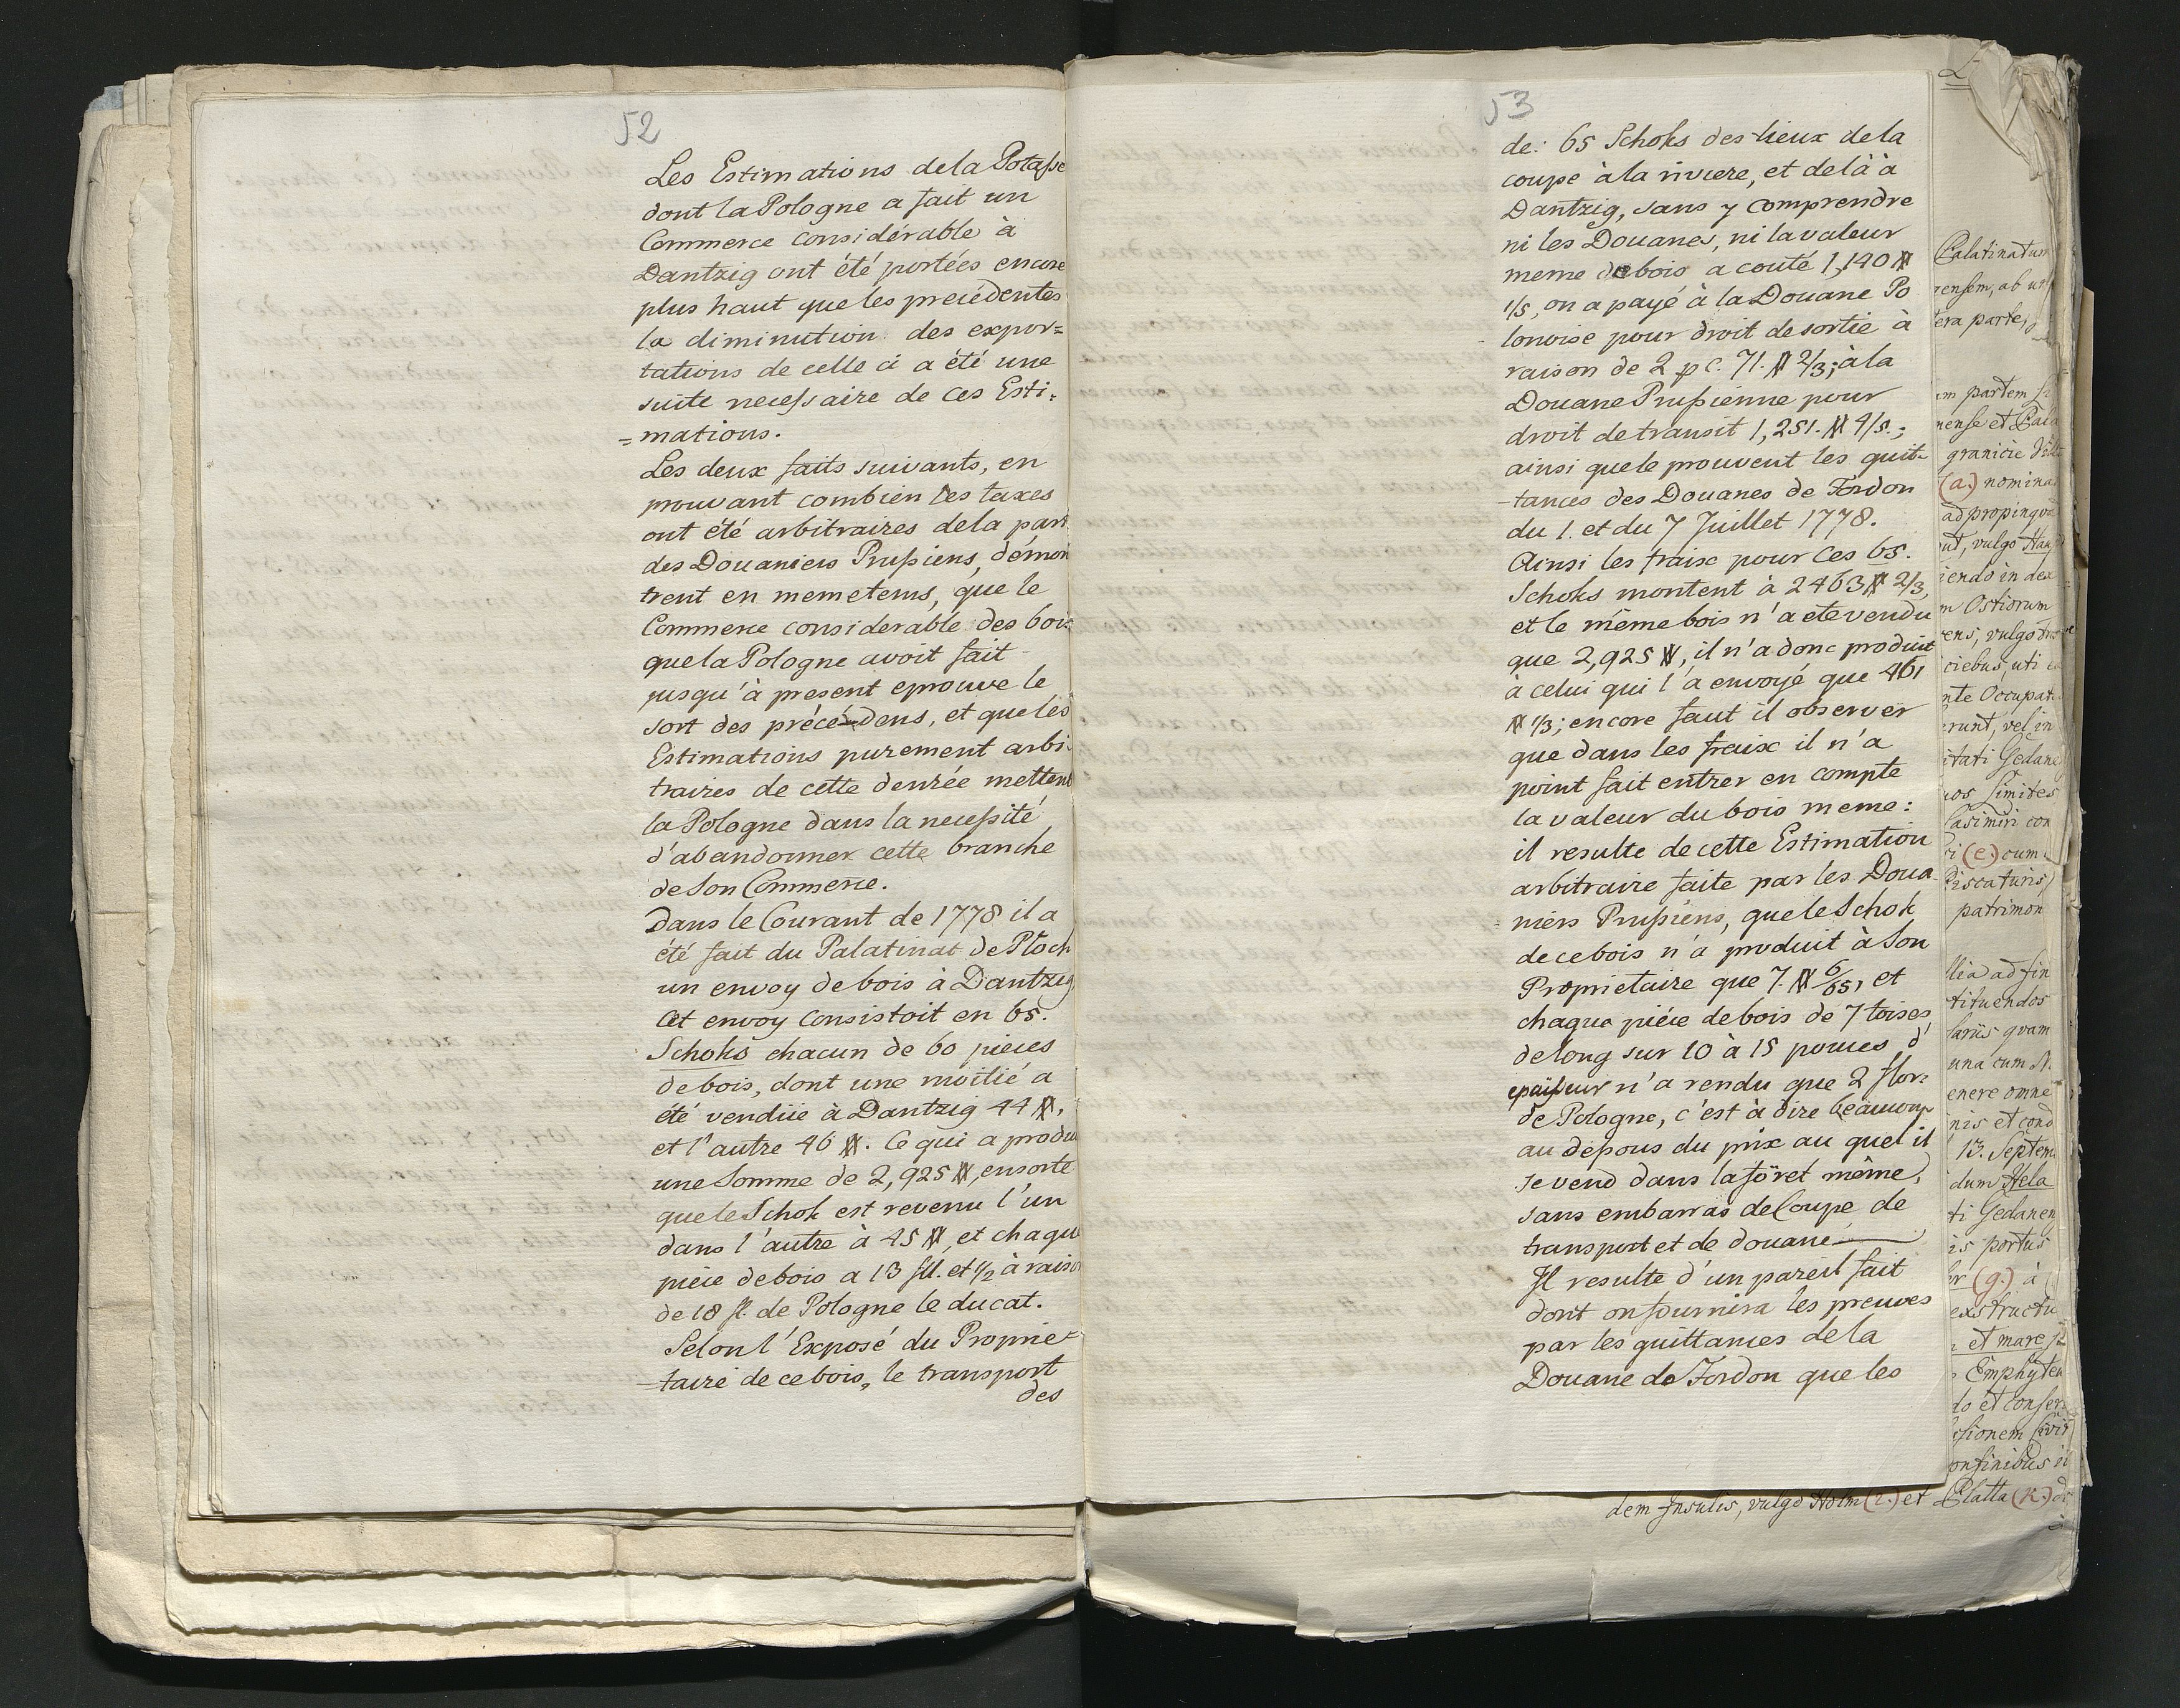 52
Les Estimations de la Potasse
dont la Pologne a fait un
Commerce considérable à
Dantzig ont été portées encore
plus haut que les precédentes
la diminution des expor=
tations de celle ci a été une
suite necessaire de ces Esti=
=mations.
Les deux faits suivants, en
prouvant combien les taxes
ont été arbitraires de la part
des Douaniers Prussiens, démon
trent en meme tems, que le
Commerce considerable des bois
que la Pologne avoit fait
jusqu'à present eprouve le
sort des précédens, et que les
Estimations purement arbi=
traires de cette denrée mettent
la Pologne dans la necessité
d'abandonner cette branche
de son Commerce.
Dans le Courant de 1778 il a
été fait du Palatinat de Plock
un envoy de bois à Dantzig
Cet envoy Consistoit en 65.
Schoks chacun de 60 pieces
de bois, dont une moitié a
été vendüe à Dantzig 44 #,
et l'autre 46 #. Ce qui a produ
une Somme de 2,925 #, ensorte
que le Schok est revenu l'un
dans l'autre à 45 #, et chaque
piéce de bois a 13 fll. et 1/2 à raiso
de 18 fl. de Pologne le ducat.
Selon l'Exposé du Proprie
-taire de ce bois, le transport
des
53
de: 65 Schoks des lieux de la
coupe à la riviere, et de là à
Dantzig, sans y comprendre
ni les Douanes, ni la valeur
meme de bois a couté 1,140 #
1/5, on a payé à la Douane Po
lonoise pour droit de sortie à
raison de 2 p C. 71. # 2/3; à la
Douane Prussienne pour
droit de transit 1,251. # 4/5.;
ainsi que le prouvent les quit-
-tances des Douanes de Fordon
du 1. et du 7 Juillet 1778.
Ainsi les fraix pour ces 65.
Schoks montent à 2463 # 2/3,
et le même bois n'a eté vendu
que 2,925 #, il n'a donc produit
à celui qui l'a envoyé que 461
# 1/3; encore faut il observer
que dans les fraix il n'a
point fait entrer en compte
la valeur du bois meme:
il resulte de cette Estimation
arbitraire faite par les Doua-
=niers Prussiens, que le Schok
de ce bois n'a produit à son
Proprietaire que 7. # 6/65, et
chaque piéce de bois de 7 toises
de long sur 10 à 15 pouces d'
epaisseur n'a rendu que 2 flor:
de Pologne, c'est à dire beaucoup
au desous du prix au quel il
se vend dans la forêt même,
sans embarras de Coupe, de
transport et de douane
Il resulte d'un pareil fait
dont on fournira les preuves
par les quittances de la
Douane de Fordon que les
Palatinatu
rensem, ab un
tera parte,
im partem
nense et Pala
granicie
(a.) nomina
ad propinqua
ut, vulgo Hau
iendo in dex
m Ostiorum
ens, vulgo
ciebus, uti
nte Occupat
erunt, vel in
itati Gedane
uos Limites
Casimiri con
ri (e.) cum
Piscaturis
patrimon
llia ad fin
tituendos
lariis quam
una cum
enere omne
nis et cond
13. Septem
dum Hela
ti Gedanen
is portus
(g.) à
exstructu
et mare
Emphyteu
do et conser
isionem Civi
onfinibus
dem Insulis, vulgo Holm (i.) et Platta (k.)